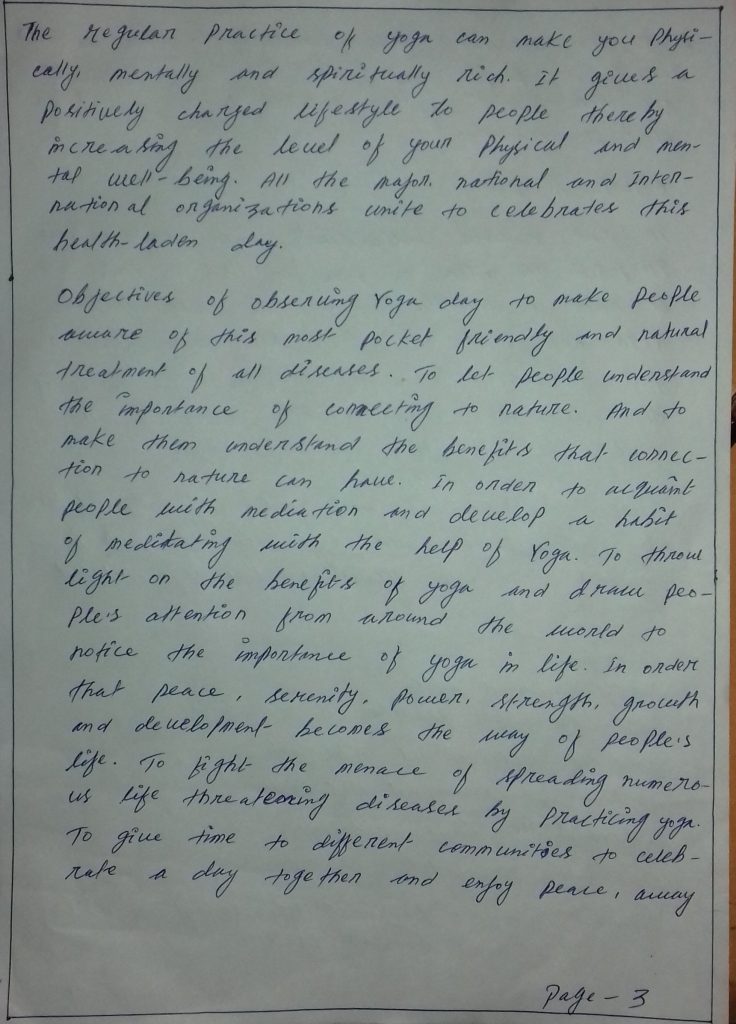 The regular practice of yoga can make you physi-
cally, mentally and spiritually rich. It gives a
positively charged lifestyle to people thereby
increasing the level of your physical and men-
tal well-being. All the major national and Inter-
national organizations unite to celebrates this
health-laden day.
Objectives of observing Yoga day to make people
aware of this most pocket friendly and natural
treatment of all diseases. To let people understand
the importance of connecting to nature. And to
make them understand the benefits that connec-
tion to nature can have. In order to acquaint
people with mediation and develop a habit
of meditating with the help of Yoga. To throw
light on the benefits of yoga and draw peo-
ple's attention from around the world to
notice the importance of yoga in life. In order
that peace, serenity, power, strength, growth
and development becomes the way of people's
life. To fight the menace of spreading numero-
us life threatening diseases by practicing yoga.
To give time to different communities to celeb-
rate a day together and enjoy peace, away
Page - 3